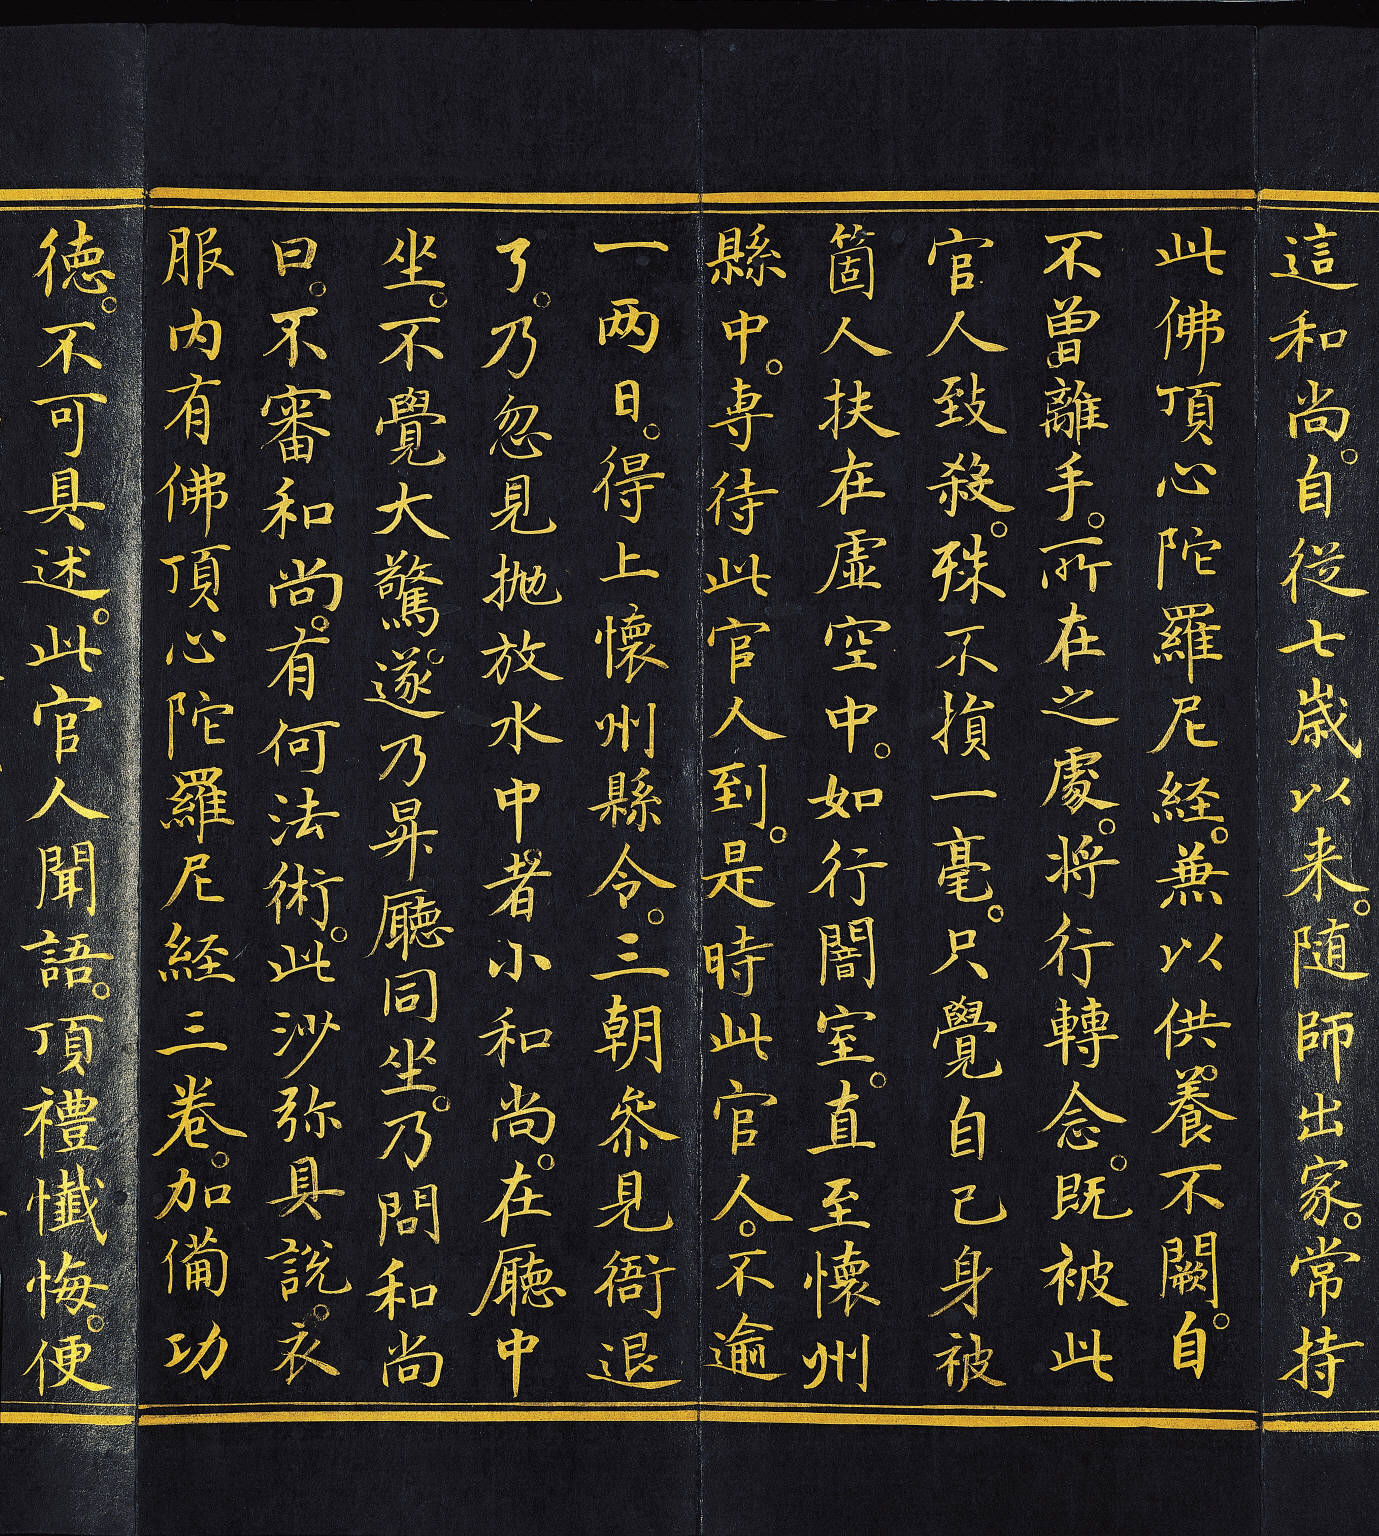 這和尚。自從七歲以来。随師出家。常持
此佛頂心陀羅尼経。兼以供養。不闕。自
不曾離手。所在之處。将行轉念。既被此
官人致殺。殊不損一毫。只覺自己身被
箇人扶在虛空中。如行闇室。直至懷州
縣中。専待此官人到。是時此官人。不逾
一两日。得上懷州縣令。三朝叅見衙退
了。乃忽見抛放水中者。小和尚。在廳中
坐。不覺大驚。遂乃昇廳同坐。乃問和尚
曰。不審和尚。有何法術。此沙弥具說。衣
服内有佛頂心陀羅尼経三卷。加備功
德。不可具述。此官人聞語。頂禮懺悔。便